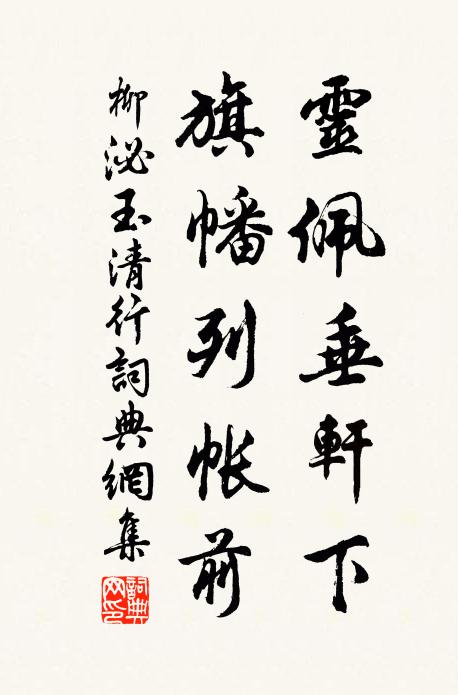 靈佩垂軒下
旗幡列帳前
柳泌玉清行詞典網集
詞典网印